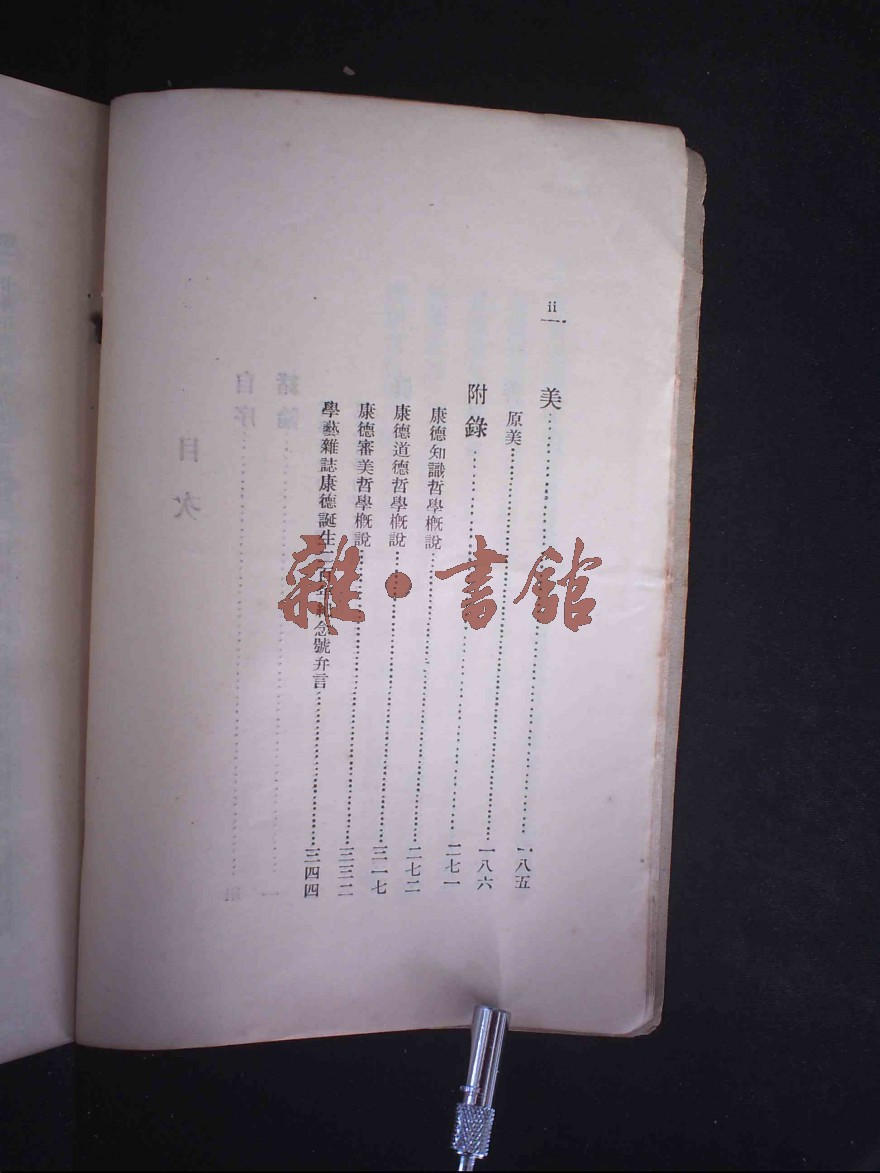 ii
美……一八五
原美……一八六
附錄……二七一
康德知識哲學概說……二七二
康德道德哲學概說……三一七
康德審美哲學概說……三三二
學藝雜誌康德誕生二百年紀念號弁言……三四四
雜·書館